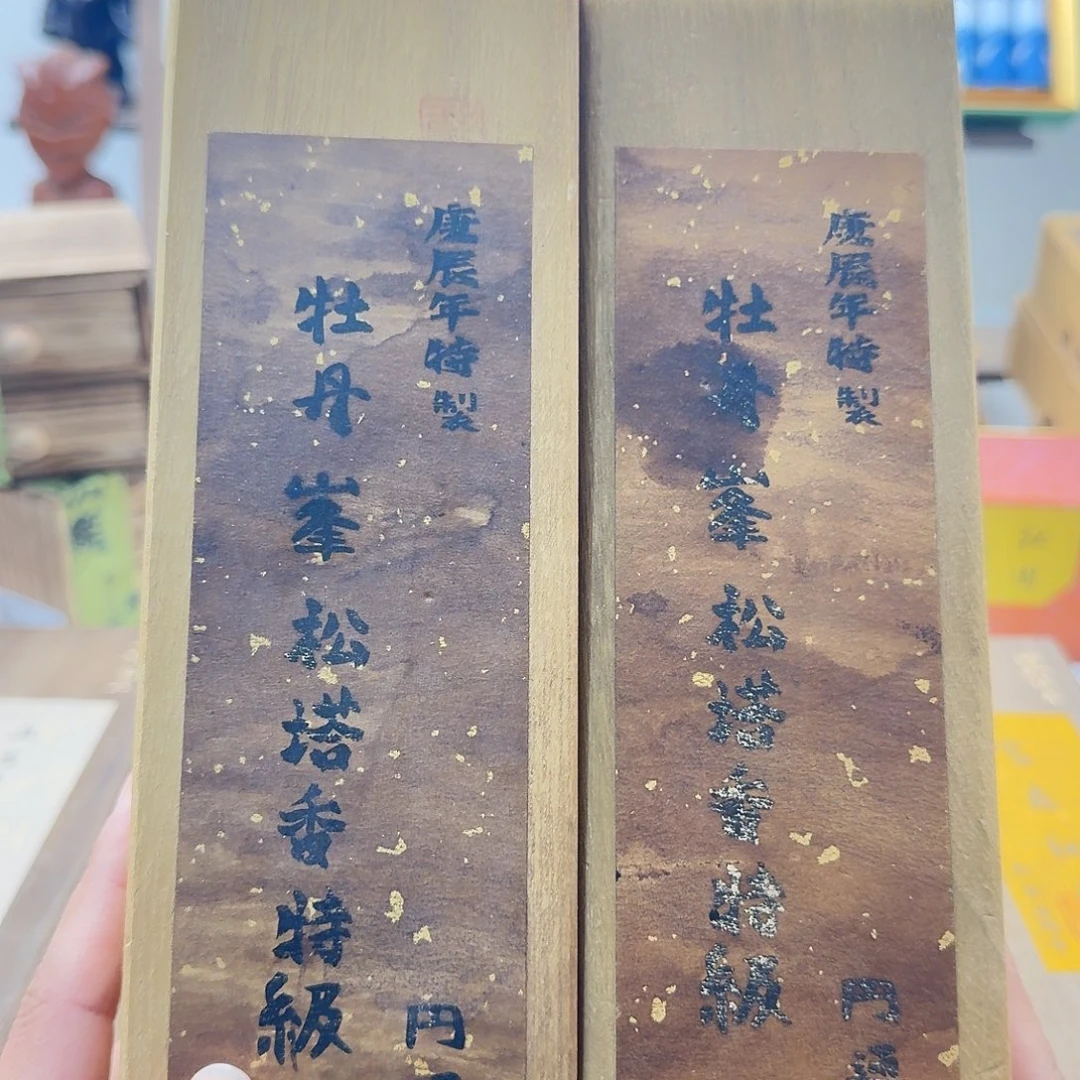 庚辰年特製
牡丹峯松塔香特級
円
庚辰年特製
牡丹峯松塔香特級
円通